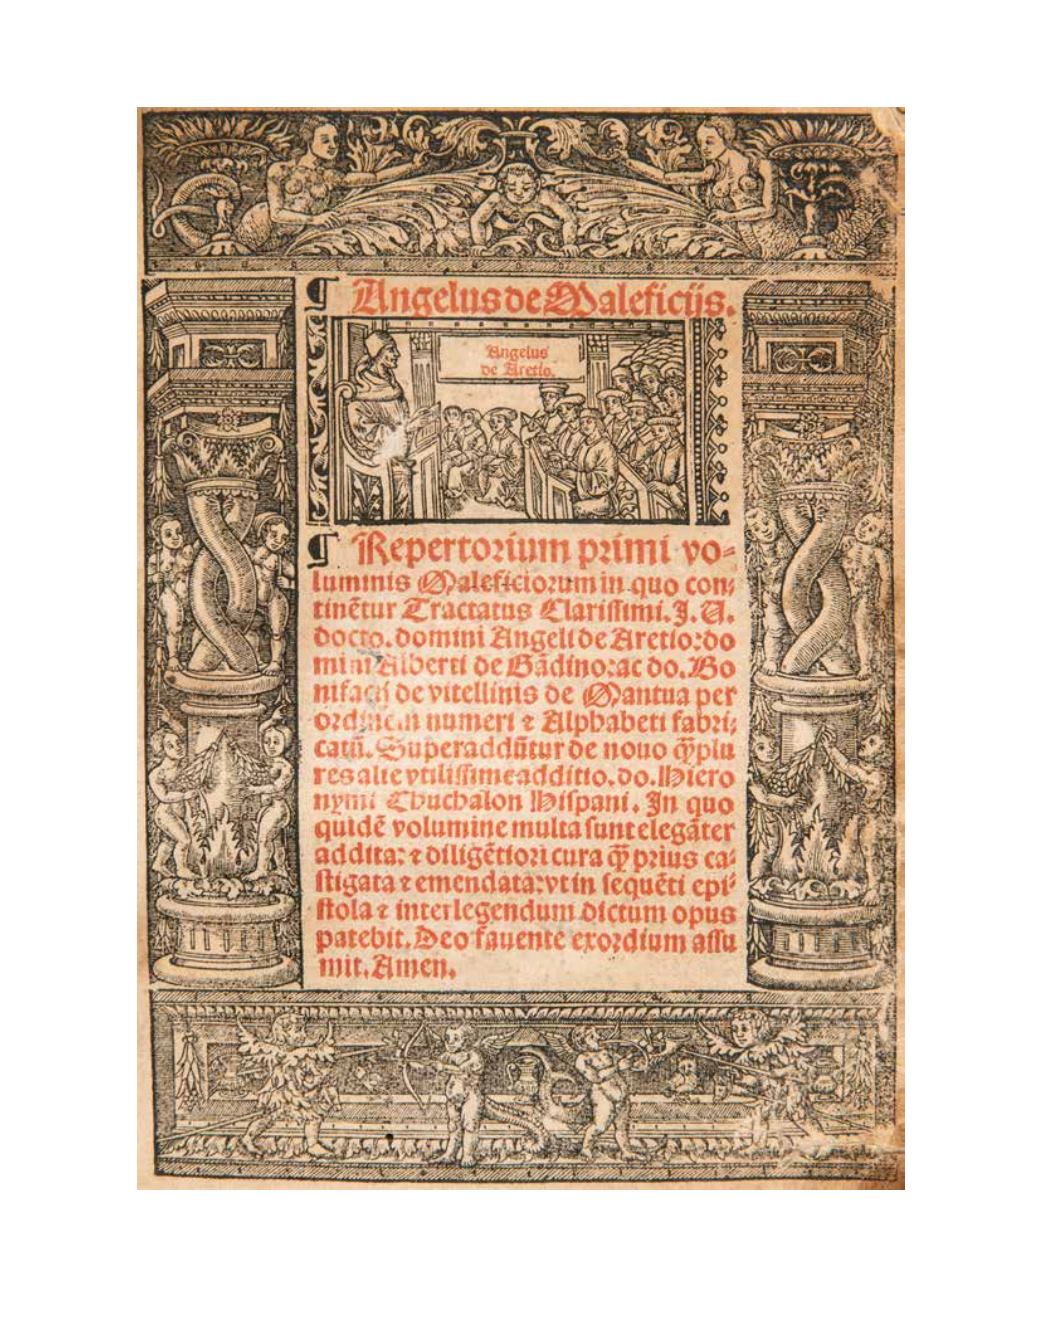 ¶ Angelus de Maleficijs.
Angelus
de Aretio.
¶ Repertorium primi vo⸗
luminis Maleficiorum in quo con⸗
tinētur Tractatus Clarissimi. J. U.
docto. domini Angeli de Aretio: do
mini Alberti de Gādino: ac do. Bo
nifacij de vitellinis de Mantua per
ordinem numeri ⁊ Alphabeti fabri⸗
catū. Superaddūtur de nouo q̄plu
res alie vtilissime additio. do. Hiero
nymi Chuchalon Hispani. In quo
quidē volumine multa sunt elegāter
addita: ⁊ diligētiori cura q̄ prius ca⸗
stigata ⁊ emendata: vt in sequēti epi⸗
stola ⁊ inter legendum dictum opus
patebit. Deo fauente exordium assu
mit. Amen.